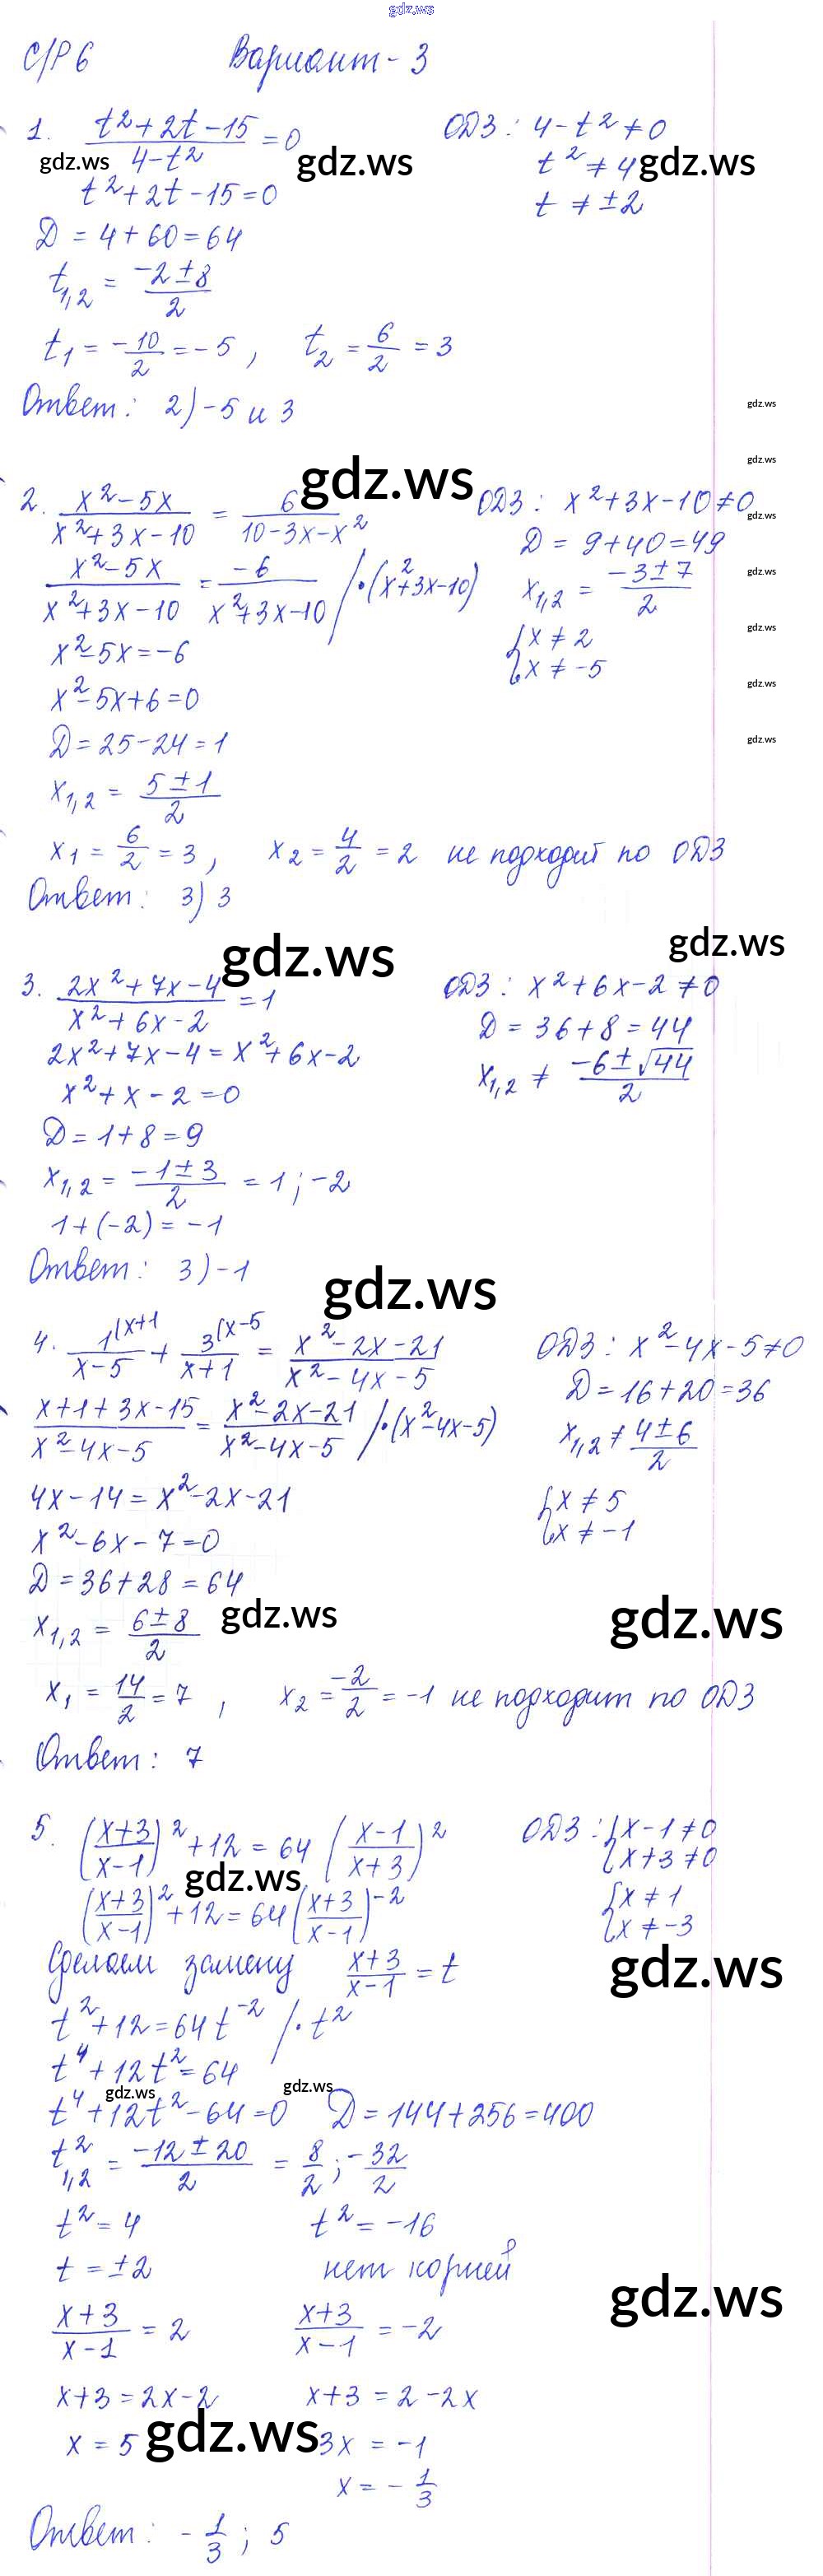 gdz.ws
С/Р 6 Вариант - 3
1. (t² + 2t - 15)/(4 - t²) = 0 ОДЗ: 4 - t² ≠ 0
gdz.ws gdz.ws t² ≠ 4 gdz.ws
t² + 2t - 15 = 0 t ≠ ±2
Д = 4 + 60 = 64
t₁,₂ = (-2 ± 8)/2
t₁ = -10/2 = -5, t₂ = 6/2 = 3
Ответ: 2) -5 и 3
gdz.ws
gdz.ws
gdz.ws
2. (x² - 5x)/(x² + 3x - 10) = 6/(10 - 3x - x²) ОДЗ: x² + 3x - 10 ≠ 0
gdz.ws
Д = 9 + 40 = 49
(x² - 5x)/(x² + 3x - 10) = -6/(x² + 3x - 10) / · (x² + 3x - 10) x₁,₂ = (-3 ± 7)/2
gdz.ws
x² - 5x = -6 { x ≠ 2
gdz.ws
x ≠ -5
x² - 5x + 6 = 0
gdz.ws
Д = 25 - 24 = 1
gdz.ws
x₁,₂ = (5 ± 1)/2
x₁ = 6/2 = 3, x₂ = 4/2 = 2 не подходит по ОДЗ
Ответ: 3) 3
gdz.ws gdz.ws
3. (2x² + 7x - 4)/(x² + 6x - 2) = 1 ОДЗ: x² + 6x - 2 ≠ 0
Д = 36 + 8 = 44
2x² + 7x - 4 = x² + 6x - 2
x₁,₂ ≠ (-6 ± √44)/2
x² + x - 2 = 0
Д = 1 + 8 = 9
x₁,₂ = (-1 ± 3)/2 = 1; -2
1 + (-2) = -1
Ответ: 3) -1
gdz.ws
4. 1^(x+1/(x - 5) + 3^(x-5/(x + 1) = (x² - 2x - 21)/(x² - 4x - 5) ОДЗ: x² - 4x - 5 ≠ 0
Д = 16 + 20 = 36
(x + 1 + 3x - 15)/(x² - 4x - 5) = (x² - 2x - 21)/(x² - 4x - 5) / · (x² - 4x - 5) x₁,₂ ≠ (4 ± 6)/2
4x - 14 = x² - 2x - 21 { x ≠ 5
x² - 6x - 7 = 0 x ≠ -1
Д = 36 + 28 = 64
x₁,₂ = (6 ± 8)/2 gdz.ws gdz.ws
x₁ = 14/2 = 7, x₂ = -2/2 = -1 не подходит по ОДЗ
Ответ: 7
5. ((x + 3)/(x - 1))² + 12 = 64 ((x - 1)/(x + 3))² ОДЗ: { x - 1 ≠ 0
x + 3 ≠ 0
gdz.ws
((x + 3)/(x - 1))² + 12 = 64 ((x + 3)/(x - 1))⁻² { x ≠ 1
x ≠ -3
Сделаем замену (x + 3)/(x - 1) = t gdz.ws
t² + 12 = 64t⁻² / · t²
t⁴ + 12t² = 64
gdz.ws gdz.ws
t⁴ + 12t² - 64 = 0 Д = 144 + 256 = 400
t²₁,₂ = (-12 ± 20)/2 = 8/2; -32/2
t² = 4 t² = -16
t = ±2 нет корней
gdz.ws
(x + 3)/(x - 1) = 2 (x + 3)/(x - 1) = -2
x + 3 = 2x - 2 x + 3 = 2 - 2x
x = 5 gdz.ws 3x = -1
x = -1/3
Ответ: -1/3; 5